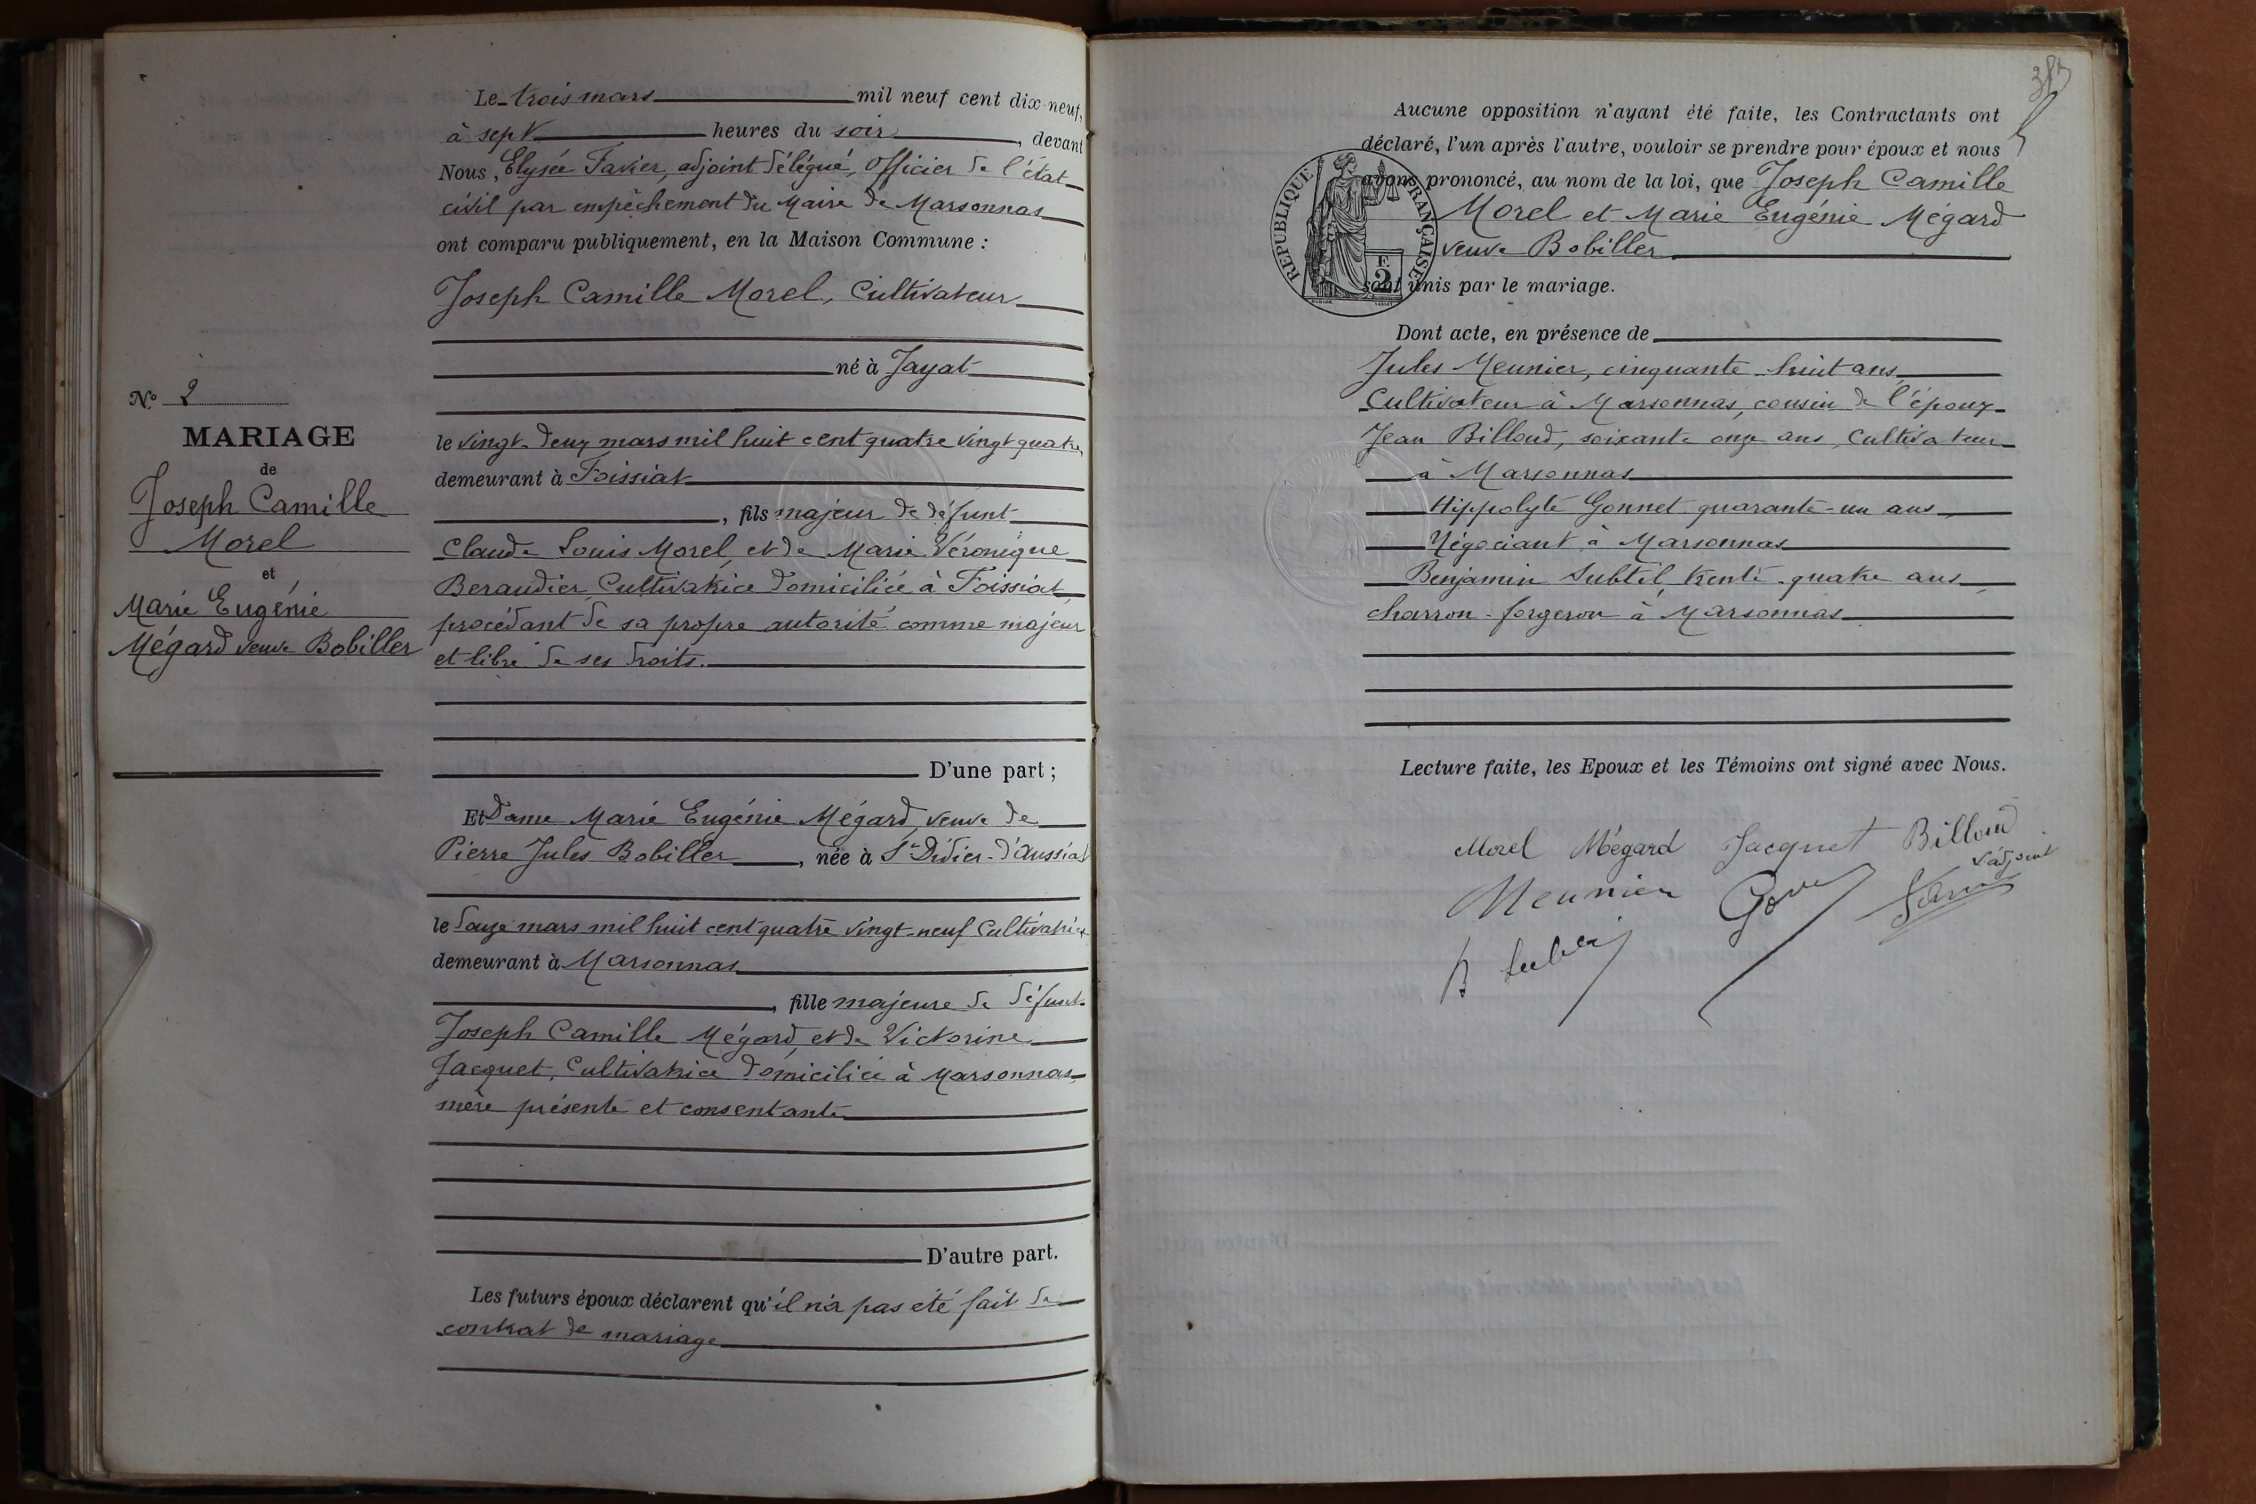 N° 2
MARIAGE
de
Joseph Camille
Morel
et
Marie Eugénie
Mégard veuve Bobiller
Le trois mars mil neuf cent dix-neuf,
à sept heures du soir, devant
Nous, Elysée Favier, adjoint délégué, Officier de l'état
civil par empêchement du Maire de Marsonnas
ont comparu publiquement, en la Maison Commune :
Joseph Camille Morel, Cultivateur
né à Jayat
le vingt-deux mars mil huit cent quatre vingt quatre,
demeurant à Foissiat
, fils majeur de défunt
Claude Louis Morel, et de Marie Véronique
Beraudier, Cultivatrice domiciliée à Foissiat,
procédant de sa propre autorité comme majeur
et libre de ses droits.
D'une part ;
Et Dame Marie Eugénie Mégard, veuve de
Pierre Jules Bobiller, née à St Didier-d'Aussiat
le douze mars mil huit cent quatre vingt-neuf Cultivatrice
demeurant à Marsonnas
, fille majeure de défunt
Joseph Camille Mégard, et de Victorine
Jacquet, Cultivatrice domiciliée à Marsonnas,
mère présente et consentante
D'autre part.
Les futurs époux déclarent qu'il n'a pas été fait de
contrat de mariage
Aucune opposition n'ayant été faite, les Contractants ont
déclaré, l'un après l'autre, vouloir se prendre pour époux et nous
avons prononcé, au nom de la loi, que Joseph Camille
Morel et Marie Eugénie Mégard
veuve Bobiller
sont unis par le mariage.
REPUBLIQUE FRANÇAISE
F.
2
Dont acte, en présence de
Jules Meunier, cinquante-huit ans,
Cultivateur à Marsonnas, cousin de l'époux
Jean Billoud, soixante onze ans, Cultivateur
à Marsonnas
Hippolyte Gonnet quarante-un ans,
Négociant à Marsonnas
Benjamin Subtil, trente-quatre ans,
charron-forgeron à Marsonnas
Lecture faite, les Epoux et les Témoins ont signé avec Nous.
Morel Mégard Jacquet Billoud
Meunier
L'adjoint